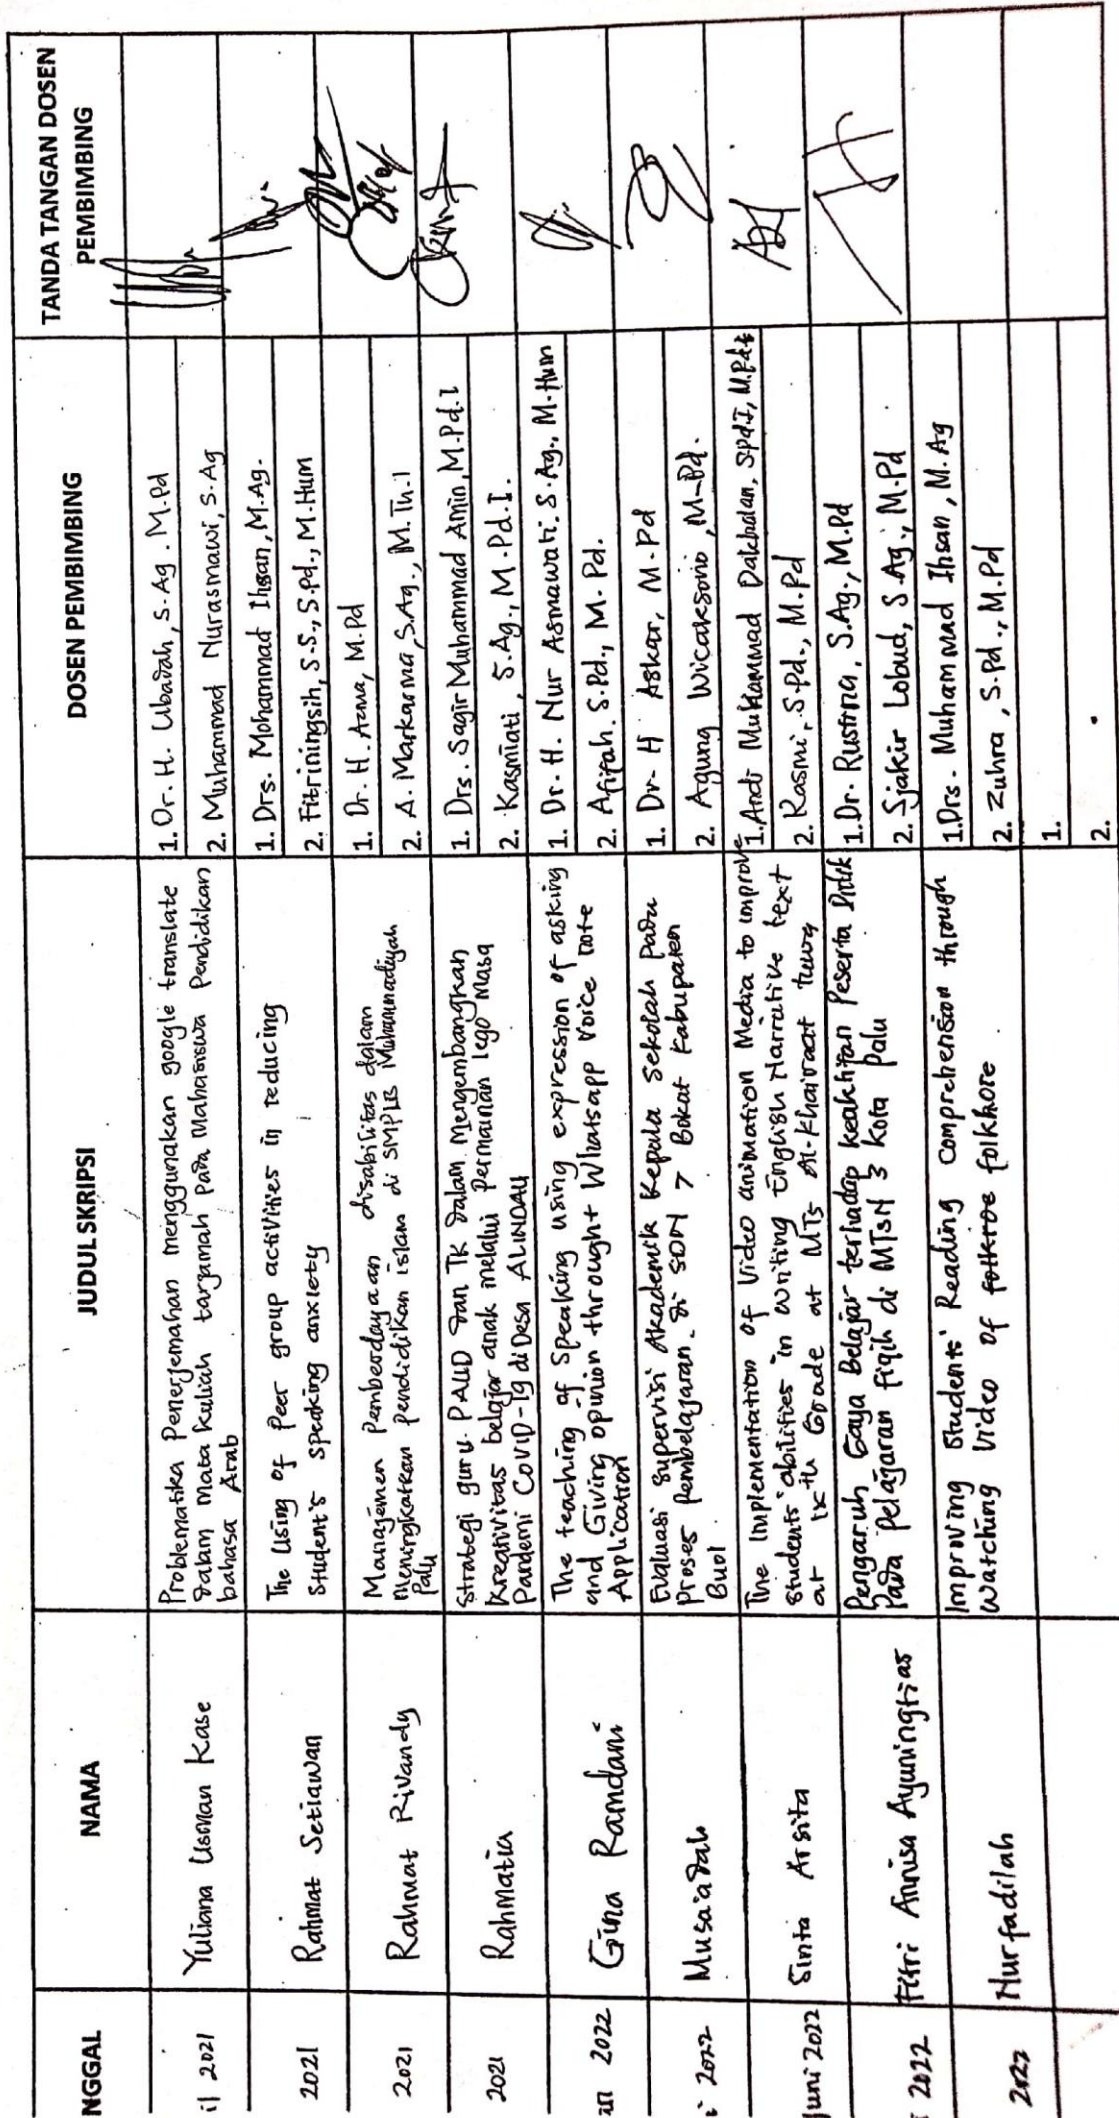 NGGAL
NAMA
JUDUL SKRIPSI
DOSEN PEMBIMBING
TANDA TANGAN DOSEN
PEMBIMBING
il 2021
Yuliana Usman Kase
Problematika Penerjemahan menggunakan google translate
dalam Mata kuliah tarjamah Pada Mahasiswa Pendidikan
bahasa Arab
1. Dr. H. Ubadah, S.Ag. M.Pd
2. Muhammad Nurasmawi, S.Ag
2021
Rahmat Setiawan
The Using of Peer group activities in reducing
Student's speaking anxiety
1. Drs. Mohammad Ihsan, M.Ag.
2. Fitriningsih, S.S., S.Pd., M.Hum
2021
Rahmat Rivandy
Manajemen Pemberdayaan disabilitas dalam
meningkatkan pendidikan islam di SMPLB Muhammadiyah
Palu
1. Dr. H. Azma, M.Pd
2. A. Markarma, S.Ag., M.Th.I
2021
Rahmatia
Strategi guru PAUD dan TK dalam Mengembangkan
Kreativitas belajar anak melalui Permainan lego Masa
Pandemi COVID-19 di Desa ALINDAU
1. Drs. Sagir Muhammad Amin, M.Pd.I
2. Kasmiati, S.Ag., M.Pd.I.
2022
Gina Ramdani
The teaching of Speaking using expression of asking
and Giving opinion throught Whatsapp Voice note
Application
1. Dr. H. Nur Asmawati. S.Ag., M.Hum
2. Afifah. S.Pd., M.Pd.
i 2022
Musa'adah
Evaluasi Supervisi Akademik Kepala Sekolah Pada
Proses Pembelajaran di SDN 7 Bokat Kabupaten
Buol
1. Dr. H Askar, M.Pd
2. Agung Wicaksono, M.Pd.
Juni 2022
Sinta Arsita
The Implementation of Video animation Media to improve
Students' abilities in writing English Narrative text
at IX th Grade at MTs Al-Khairaat
1. Andi Muhammad Dakhalan, S.Pd.I, M.Pd.I
2. Rasmi, S.Pd., M.Pd
2022
Fitri Annisa Ayuningtias
Pengaruh Gaya Belajar terhadap keaktifan Peserta Didik
Pada Pelajaran fiqih di MTsN 3 Kota Palu
1. Dr. Rustina, S.Ag., M.Pd
2. Sjakir Lobud, S.Ag., M.Pd
2022
Nurfadilah
Improving Students' Reading Comprehension through
Watching Video of folkroe folklore
1. Drs. Muhammad Ihsan, M.Ag
2. Zuhra, S.Pd., M.Pd
1.
2.